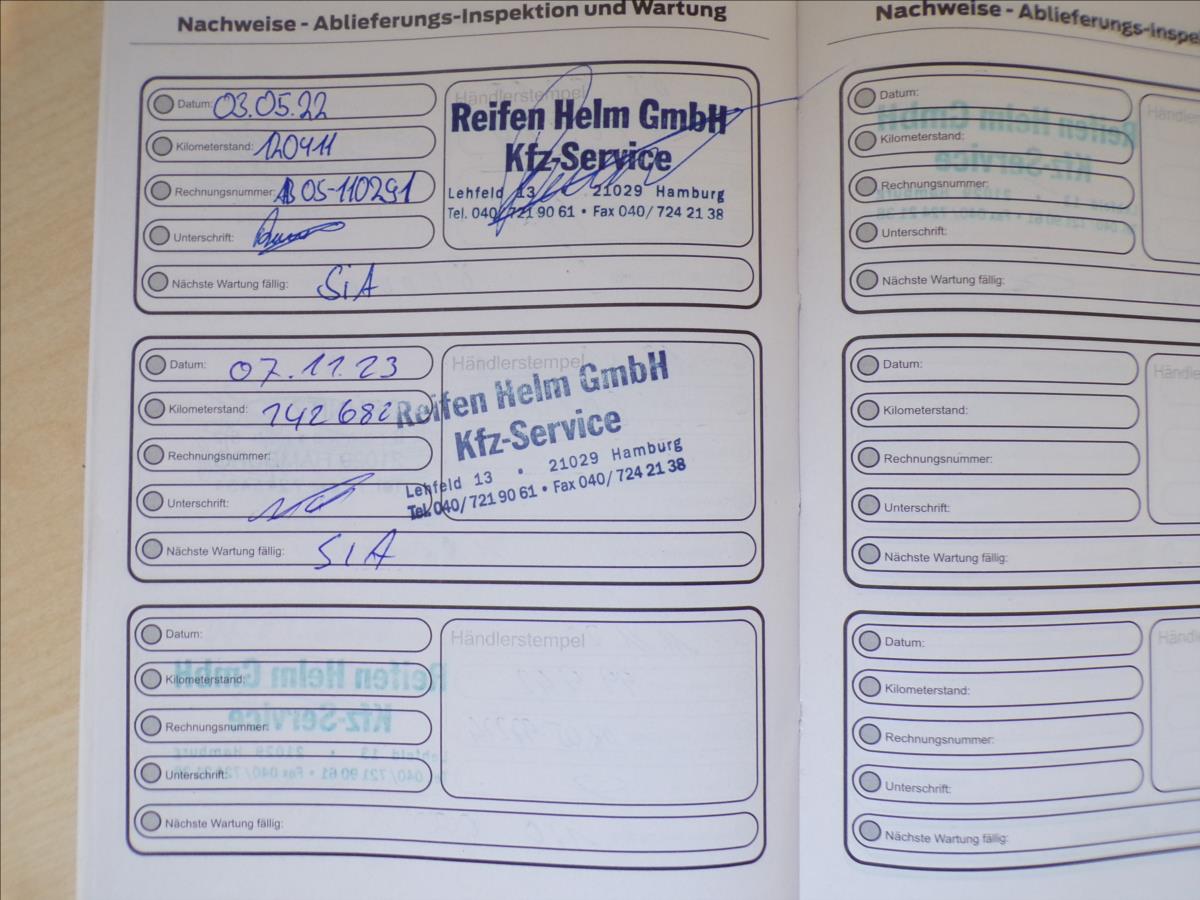 Nachweise - Ablieferungs-Inspektion und Wartung
Datum: 03.05.22
Kilometerstand: 120411
Rechnungsnummer: 05-110291
Unterschrift:
Nächste Wartung fällig: SiA
Händlerstempel
Reifen Helm GmbH
Kfz-Service
Lehfeld 13 • 21029 Hamburg
Tel. 040/721 90 61 • Fax 040/ 724 21 38
Datum: 07.11.23
Kilometerstand: 142682
Rechnungsnummer:
Unterschrift:
Nächste Wartung fällig: SIA
Händlerstempel
Reifen Helm GmbH
Kfz-Service
Lehfeld 13 • 21029 Hamburg
Tel. 040/ 721 90 61 • Fax 040/ 724 21 38
Datum:
Kilometerstand:
Rechnungsnummer:
Unterschrift:
Nächste Wartung fällig:
Händlerstempel
Nachweise - Ablieferungs-Inspe
Datum:
Kilometerstand:
Rechnungsnummer:
Unterschrift:
Nächste Wartung fällig:
Händ
Datum:
Kilometerstand:
Rechnungsnummer:
Unterschrift:
Nächste Wartung fällig:
Händle
Datum:
Kilometerstand:
Rechnungsnummer:
Unterschrift:
Nächste Wartung fällig:
Händl